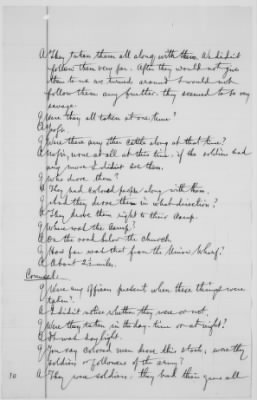 A They taken them all along with them. We did not
follow them very far. After they would not give
them to us we turned around. I would not
follow them any further. they seemed to be very
savage.
Q Were they all taken at one time?
A Yes sir.
Q Were there any other cattle along at that time?
A No sir, none at all at this time, if the soldiers had
any more I didnt see them.
Q Who drove them?
A They had colored people along with them.
Q And they drove them in what direction?
A They drove them right to their Camp.
Q Where was the Camp?
A On the road below the church.
Q How far was that from the Union Wharf?
A About 2½ miles.
Counsel.
Q Were any officers present when these things were
taken?
A I did not notice whether they were or not.
Q Were they taken in the day-time or at night?
A It was day light.
Q You say colored men drove this stock, were they
soldiers or followers of the army?
A They was soldiers. they had their guns all